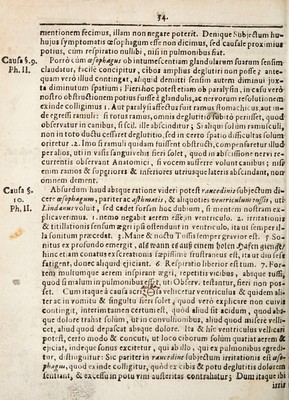 34.
mentionem fecimus, illam non negare poterit. Denique Subjectum hu-
hujus symptomatis œsophagum esse non dicimus, sed causale proximius
potius, cum respiratio nullibi, nisi in pulmonibus fiat.
Causa §. 9.
Ph. II.
Porrò cùm œsophagus ob intumescentiam glandularum suarum sensim
claudatur, facilè concipitur, cibos amplius deglutiri non posse; ante-
quam verò illud contingat, aliquid demitti sensim autem diminui jux-
ta diminutum spatium; Fieri hoc potest etiam ob paralysin, in casu verò
nostro obstructionem potius fuisse glandulis, at nervorum resolutionem
exinde colligimus 1. Aut paralysis affectus fuit ramus stomachicus, aut in-
de egressi rami: si rotus ramus, omnis deglutitio subitò periisset, quod
observatur in canibus, si scil. ille abscinditur; Si aliqui solum ramusculi,
non in toto ductu cesset deglutitio, sed in certo spatio difficultas solum
oriretur. 2. Imo si ramuli quidam fuissent obstructi, compensaretur illud
per alios, uti in vasis sanguineis fieri solet, quod in abscissione nervi re-
currentis observant Anatomici, si vocem auferre volunt canibus; nisi
enim ramos & superiores & inferiores utriusque lateris abscindant, non
omnem dement.
Causa §.
10.
Ph. II.
Absurdum haud absque ratione videri potest raucedinis subjectum di-
cere œsophagum, pariter ac asthmatis, & aliquoties ventriculum tussis, uti
Lindanus voluit, sed cadet forsan hoc dubium, si mentem nostram ex-
plicaverimus. 1. nemo negabit aerem esse in ventriculo. 2. irritationis
& titillationis sensum ægri ipsi ostendunt in ventriculo, ita ut semper il-
la sonitum præcedat. 3. Mane & noctu Tussis semper gravior est. 7. So-
nitus ex profundo emergit, als wann es auß einem holen Hafen gienge/
hinc etiam conatus excretionis sæpissimè frustraneus est, ita ut diu sese
fatigent, donec aliquid ejiciant. 6. Respiratio liberior est illum. 7. For-
tem multumque aerem inspirant ægri, repetitis vicibus, absque tussi,
quod si malum in pulmonibus esset, uti Observ. testantur, fieri non pos-
set. Cum itaque à causa certa vellicetur ventriculus & quidem ali-
ter ac in vomitu & singultu fieri solet, quod verò explicare non cuivis
contingit, interim tantum certum est, quod aliud sit acidum, quod abs-
que dolore trahit solum, ut in convulsionibus, aliud quod miserè velli-
cet, aliud quod depascat absque dolore. Ita & hîc ventriculus vellicari
potest, certo modo & concuti, ut loco ciborum solum quiratat aerem &
ejiciat, indeque sonus excitetur, qui ab illo, qui ex pulmonibus egredi-
tur, distinguitur: Sic pariter in raucedine subjectum irritationis est œso-
phagus, quod exinde colligitur, quòd ex cibis & potu deglutitis dolorem
sentiant, & excessu in potu vini austeritas contrahatur; Dum itaque ibi
irrita